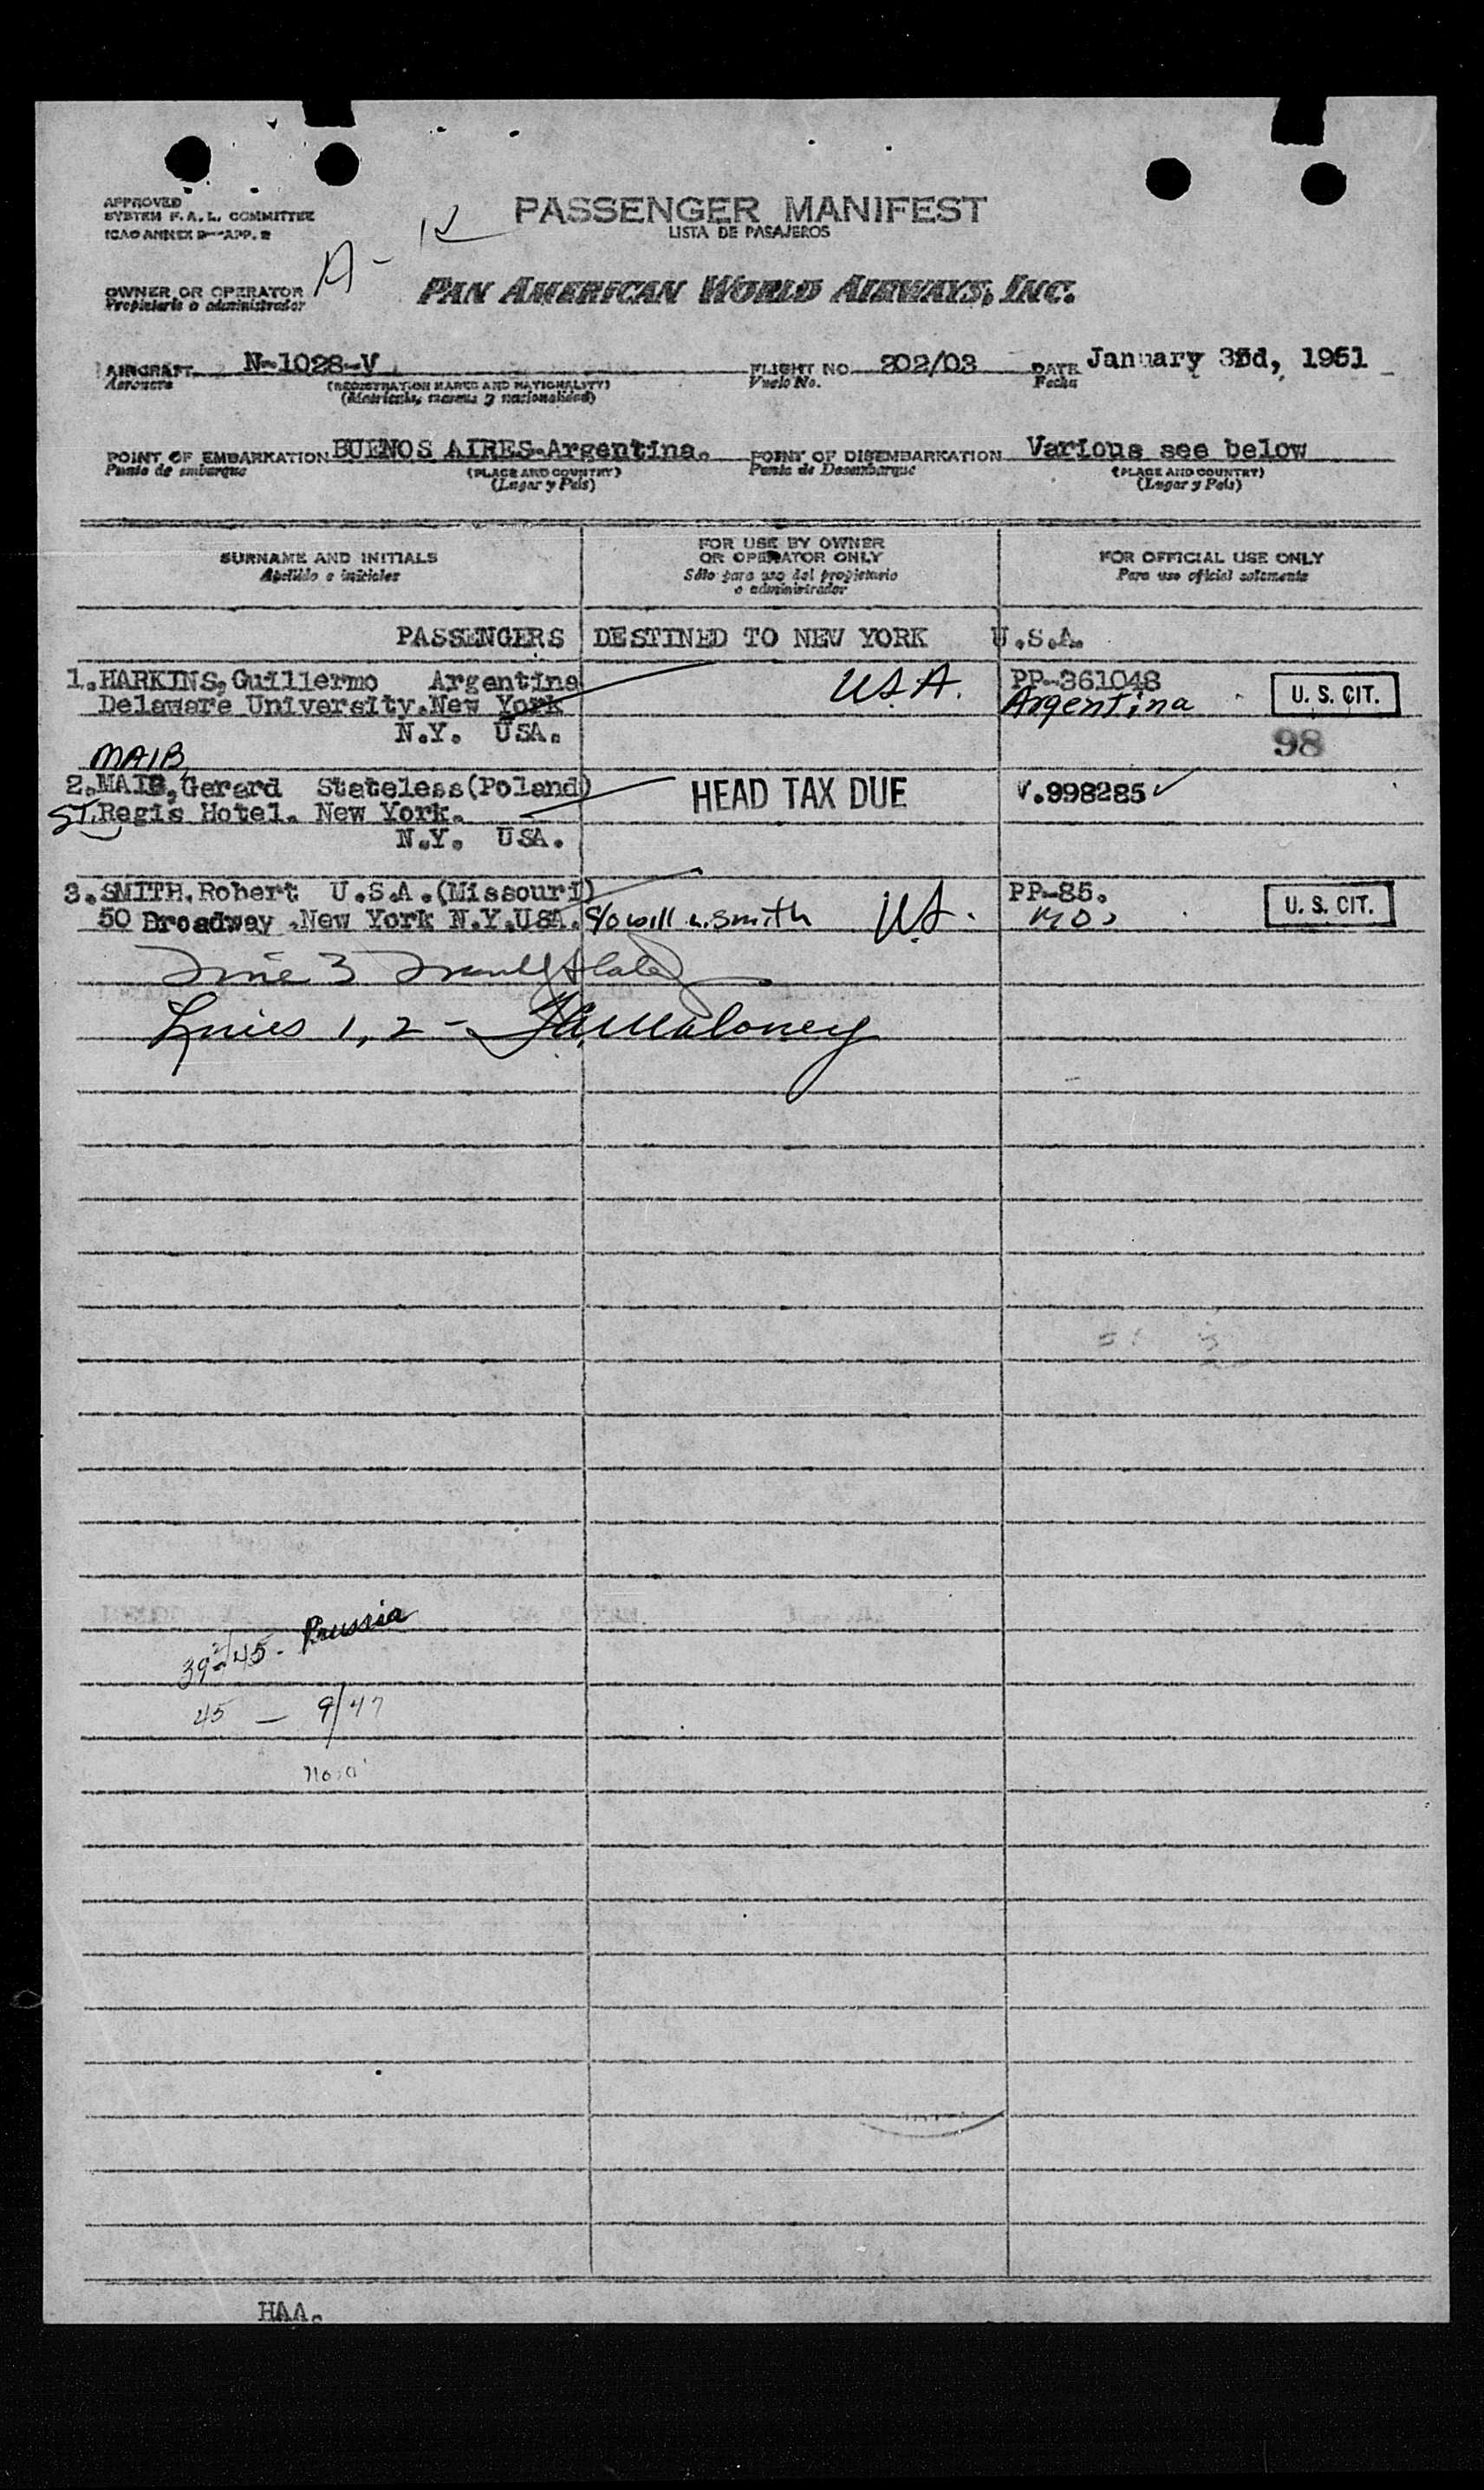 APPROVED
SYSTEM F.A.L. COMMITTEE
ICAO ANNEX 9—APP. 2
PASSENGER MANIFEST
LISTA DE PASAJEROS
A-
OWNER OR OPERATOR
Propietario o administrador
PAN AMERICAN WORLD AIRWAYS, INC.
AIRCRAFT N-1028-V FLIGHT NO. 202/03 DATE January 3rd, 1951
Aeronave (REGISTRATION MARKS AND NATIONALITY) Vuelo No. Fecha
(Matrícula, marcas y nacionalidad)
POINT OF EMBARKATION BUENOS AIRES-Argentina. POINT OF DISEMBARKATION Various see below
Punto de embarque (PLACE AND COUNTRY) Punto de Desembarque (PLACE AND COUNTRY)
(Lugar y País) (Lugar y País)
SURNAME AND INITIALS
Apellido e iniciales
FOR USE BY OWNER
OR OPERATOR ONLY
Sólo para uso del propietario
o administrador
FOR OFFICIAL USE ONLY
Para uso oficial solamente
PASSENGERS DESTINED TO NEW YORK U.S.A.
1.HARKINS,Guillermo Argentina U.S.A. PP-361048 U. S. CIT.
Delaware University.New York Argentina
N.Y. USA. 98
MAIB
2.MAIB,Gerard Stateless(Poland) HEAD TAX DUE V.998285
ST.Regis Hotel. New York.
N.Y. USA.
3.SMITH.Robert U.S.A.(Missouri) PP-85. U. S. CIT.
50 Broadway .New York N.Y.USA. c/o will n. smith U.S. Mo.
Line 3
Lines 1, 2 - Maloney
39-2/45- Prussia
45 — 9/47
HAA.